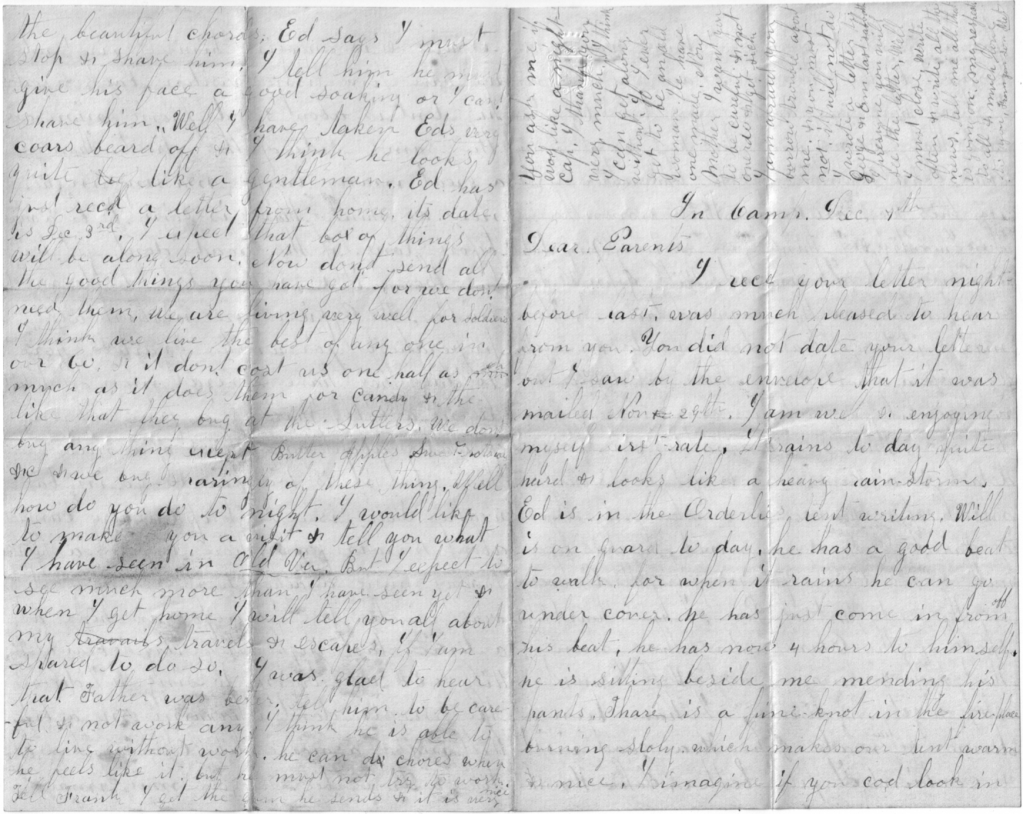 In Camp. Dec. 7th
Dear Parents
I recd your letter night
before last, was much pleased to hear
from you. You did not date your letter
but I saw by the envelope that it was
mailed Nov 29th. I am well & enjoying
myself first-rate. It rains to day quite
hard & looks like a heavy rain-storm.
Ed is in the Orderlies tent writing. Will
is on guard to day. he has a good beat
to walk for when it rains he can go
under cover. he has just come in from off
his beat, he has now 4 hours to himself.
he is sitting beside me mending his
pants. Thare is a pine knot in the fireplace
burning sloly which makes our tent warm
& nice. I imagine if you cod look in
the beautiful chords. Ed says I must
stop & shave him. I tell him he must
give his face a good soaking or I cant
shave him. Well I have taken Eds very
coars beard off & I think he looks
quite like a gentleman. Ed has
just recd a letter from home. its date
is Dec 3rd. I expect that box of things
will be along soon. Now dont send all
the good things you have got for we dont
need them, we are living very well for soldiers
I think we live the best of any one in
our Co. & it dont cost us one half as
much as it does them for candy & the
like that they buy at the Sutlers. We dont
buy any thing except Butter Apples Sweet-potatoes
&c & have but sparingly of these thing. Well
how do you do to night. I would like
to make you a visit & tell you what
I have seen in Old Va. But I expect to
see much more than I have seen yet &
when I get home I will tell you all about
my travails, travels & escapes, if I am
spared to do so. I was glad to hear
that Father was better. tell him to be care-
ful & not work any. I think he is able to
to live without work. he can do chores when
he feels like it. but he must not try to work
Tell Frank I get the he sends & it is very nice
You as me if
I wod like a night
cap, I thank you
very much, but I think
I can get along
without. if I ever
get to be an old
woman Ile have
one made. Now
Mother I want you
to be careful & not
overdo & get sick
borrow trouble about
me, for you must
not, it will not do
I wrote a letter to
George & M last night
I presume you will
see the letter. Well
I must close, write
often & write all the
news, tell me all the